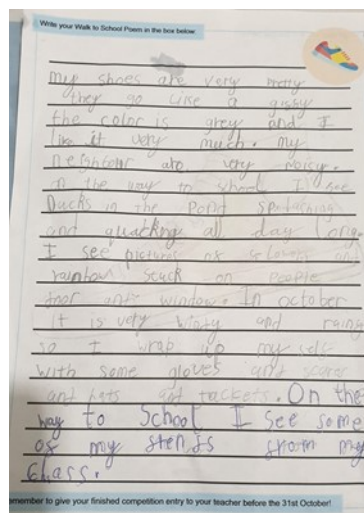 Write your Walk to School Poem in the box below
my shoes are very pretty
they go like a
the color is grey and I
like it very much. my
neighbour are very noisy.
on the way to school I see
Ducks in the Pond splashing
and quacking all day long.
I see pictures of and
rainbow stuck on people
window. In october
it is very windy and
so I wrap up my self
with some gloves and
and hats and jackets. On the
way to School I see some
of my from my
Class.
remember to give your finished competition entry to your teacher before the 31st October!